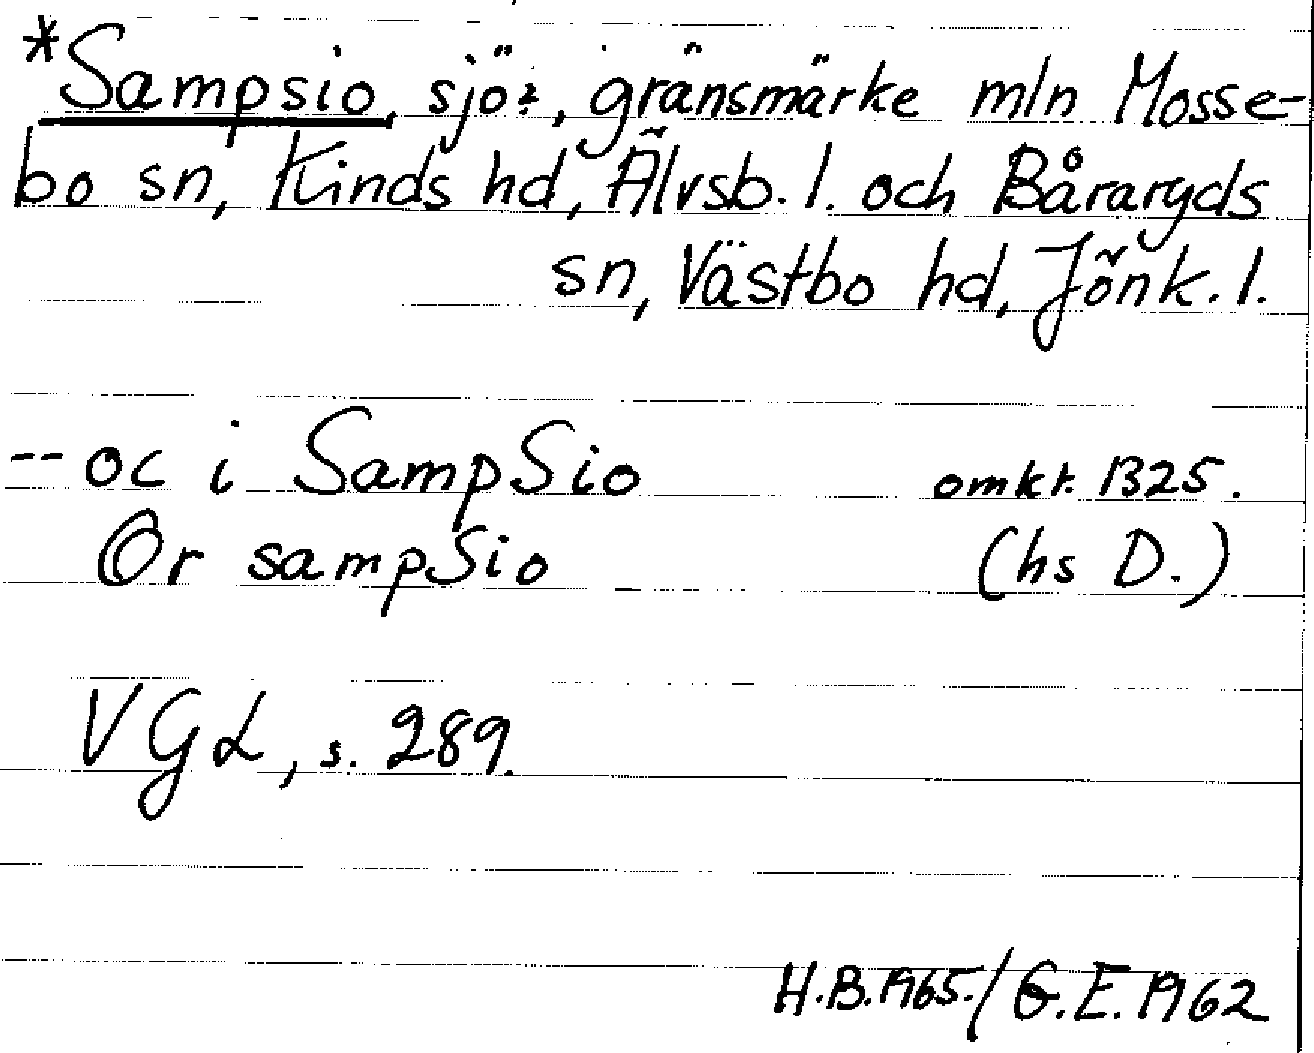 *Sampsio, sjö?, gränsmärke mln Mosse-
bo sn, Kinds hd, Älvsb. l. och Båraryds
sn, Västbo hd, Jönk. l.
-- oc i SampSio omkr. 1325.
Or sampSio (hs D.)
VGL, s. 289.
H.B. 1965. / G.E. 1962